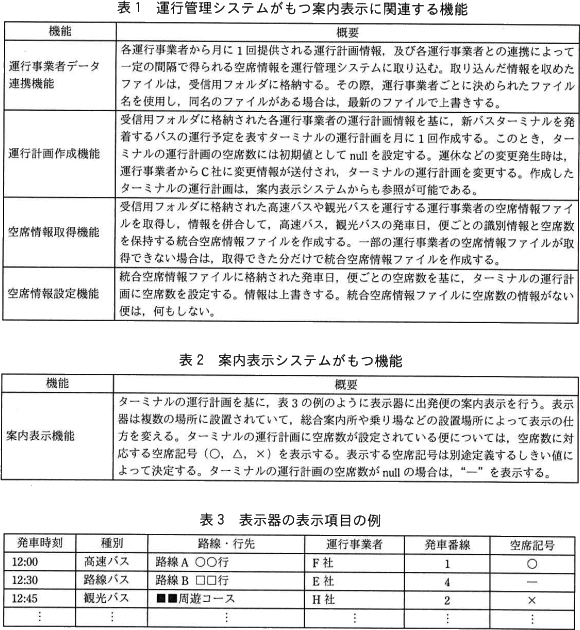 表1　運行管理システムがもつ案内表示に関連する機能
機能　概要
運行事業者データ連携機能
各運行事業者から月に1回提供される運行計画情報，及び各運行事業者との連携によって
一定の間隔で得られる空席情報を運行管理システムに取り込む。取り込んだ情報を収めた
ファイルは，受信用フォルダに格納する。その際，運行事業者ごとに決められたファイル
名を使用し，同名のファイルがある場合は，最新のファイルで上書きする。
運行計画作成機能
受信用フォルダに格納された各運行事業者の運行計画情報を基に，新バスターミナルを発
着するバスの運行予定を表すターミナルの運行計画を月に1回作成する。このとき，ター
ミナルの運行計画の空席数には初期値としてnullを設定する。運休などの変更発生時は，
運行事業者からC社に変更情報が送付され，ターミナルの運行計画を変更する。作成した
ターミナルの運行計画は，案内表示システムからも参照が可能である。
空席情報取得機能
受信用フォルダに格納された高速バスや観光バスを運行する運行事業者の空席情報ファイ
ルを取得し，情報を併合して，高速バス，観光バスの発車日，便ごとの識別情報と空席数
を保持する統合空席情報ファイルを作成する。一部の運行事業者の空席情報ファイルが取
得できない場合は，取得できた分だけで統合空席情報ファイルを作成する。
空席情報設定機能
統合空席情報ファイルに格納された発車日，便ごとの空席数を基に，ターミナルの運行計
画に空席数を設定する。情報は上書きする。統合空席情報ファイルに空席数の情報がない
便は，何もしない。
表2　案内表示システムがもつ機能
機能　概要
案内表示機能
ターミナルの運行計画を基に，表3の例のように表示器に出発便の案内表示を行う。表示
器は複数の場所に設置されていて，総合案内所や乗り場などの設置場所によって表示の仕
方を変える。ターミナルの運行計画に空席数が設定されている便については，空席数に対
応する空席記号（○，△，×）を表示する。表示する空席記号は別途定義するしきい値に
よって決定する。ターミナルの運行計画の空席数がnullの場合は，“―”を表示する。
表3　表示器の表示項目の例
発車時刻　種別　路線・行先　運行事業者　発車番線　空席記号
12:00　高速バス　路線A ○○行　F社　1　○
12:30　路線バス　路線B □□行　E社　4　―
12:45　観光バス　■■周遊コース　H社　2　×
⋮　⋮　⋮　⋮　⋮　⋮